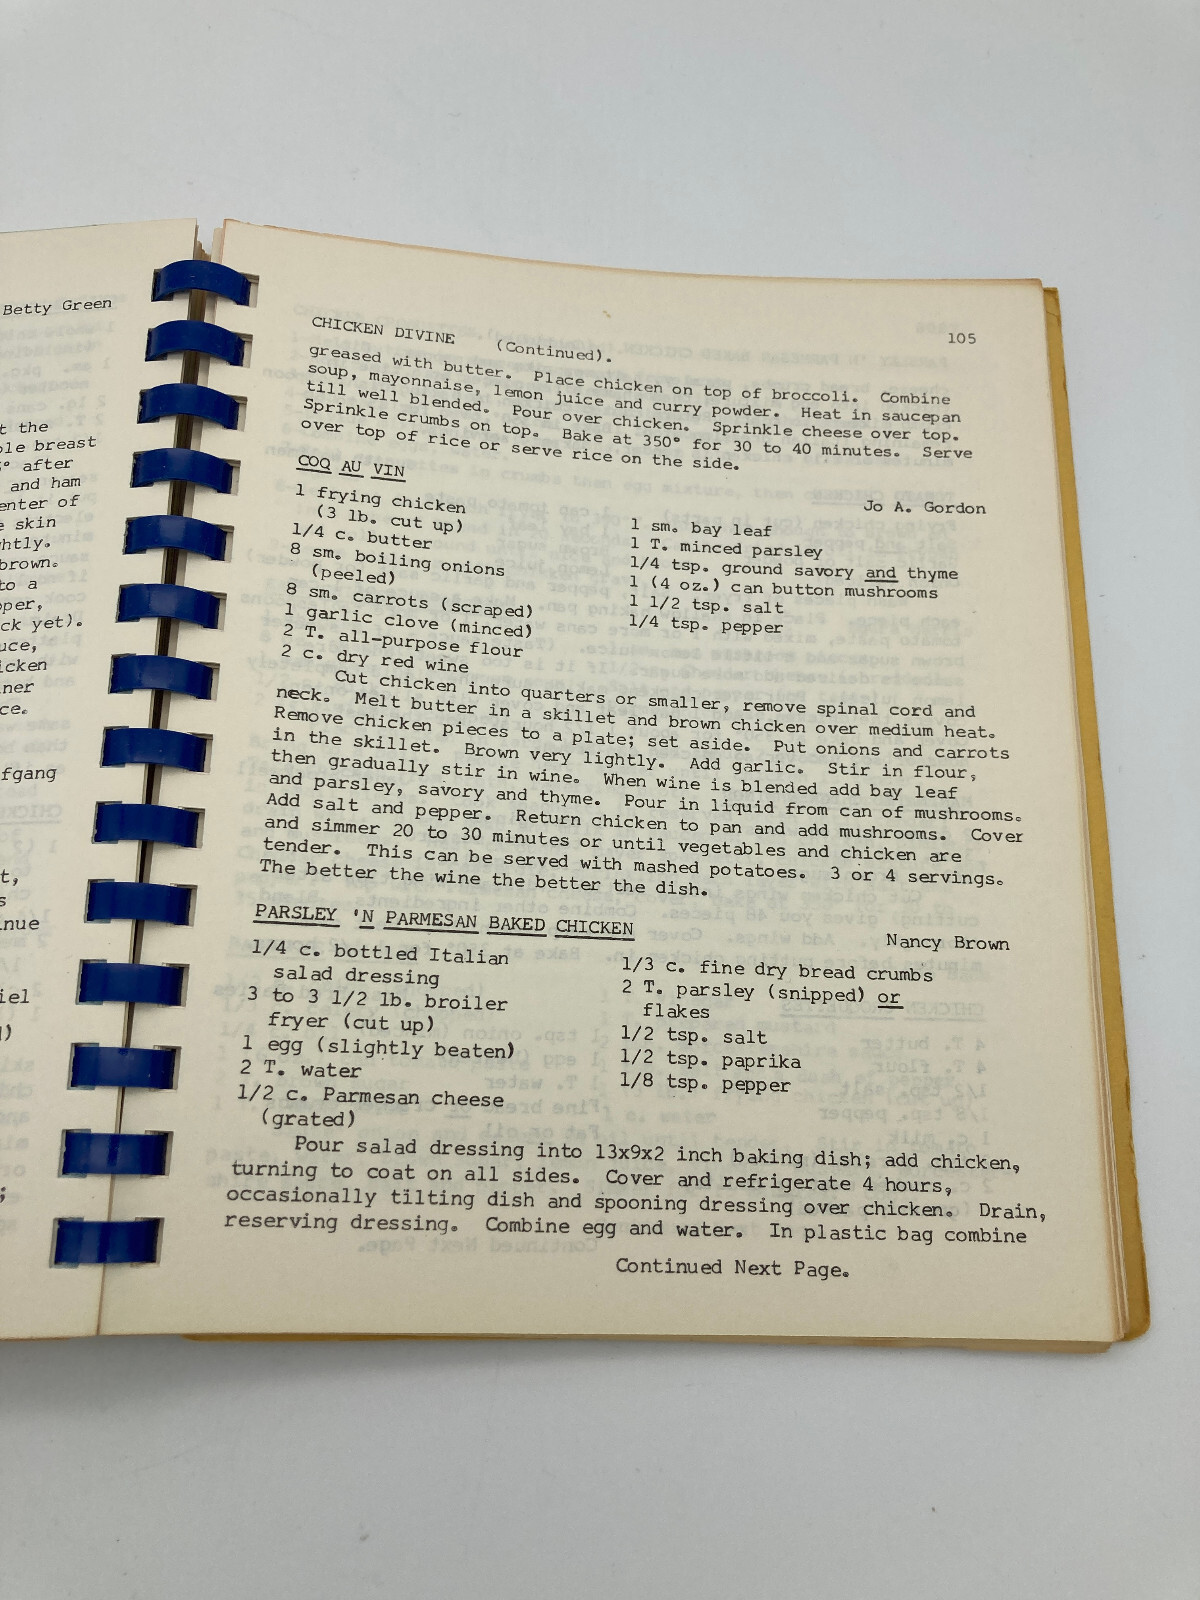 Betty Green
t the
ole breast
° after
and ham
enter of
e skin
htly.
brown.
to a
pper,
ck yet).
uce,
icken
ner
ce.
fgang
t,
s
inue
iel
)
;
105
CHICKEN DIVINE (Continued).
greased with butter. Place chicken on top of broccoli. Combine
soup, mayonnaise, lemon juice and curry powder. Heat in saucepan
till well blended. Pour over chicken. Sprinkle cheese over top.
Sprinkle crumbs on top. Bake at 350° for 30 to 40 minutes. Serve
over top of rice or serve rice on the side.
COQ AU VIN
Jo A. Gordon
1 frying chicken
(3 lb. cut up)
1/4 c. butter
8 sm. boiling onions
(peeled)
8 sm. carrots (scraped)
1 garlic clove (minced)
2 T. all-purpose flour
2 c. dry red wine
1 sm. bay leaf
1 T. minced parsley
1/4 tsp. ground savory and thyme
1 (4 oz.) can button mushrooms
1 1/2 tsp. salt
1/4 tsp. pepper
Cut chicken into quarters or smaller, remove spinal cord and
neck. Melt butter in a skillet and brown chicken over medium heat.
Remove chicken pieces to a plate; set aside. Put onions and carrots
in the skillet. Brown very lightly. Add garlic. Stir in flour,
then gradually stir in wine. When wine is blended add bay leaf
and parsley, savory and thyme. Pour in liquid from can of mushrooms.
Add salt and pepper. Return chicken to pan and add mushrooms. Cover
and simmer 20 to 30 minutes or until vegetables and chicken are
tender. This can be served with mashed potatoes. 3 or 4 servings.
The better the wine the better the dish.
PARSLEY 'N PARMESAN BAKED CHICKEN
Nancy Brown
1/4 c. bottled Italian
salad dressing
3 to 3 1/2 lb. broiler
fryer (cut up)
1 egg (slightly beaten)
2 T. water
1/2 c. Parmesan cheese
(grated)
1/3 c. fine dry bread crumbs
2 T. parsley (snipped) or
flakes
1/2 tsp. salt
1/2 tsp. paprika
1/8 tsp. pepper
Pour salad dressing into 13x9x2 inch baking dish; add chicken,
turning to coat on all sides. Cover and refrigerate 4 hours,
occasionally tilting dish and spooning dressing over chicken. Drain,
reserving dressing. Combine egg and water. In plastic bag combine
Continued Next Page.